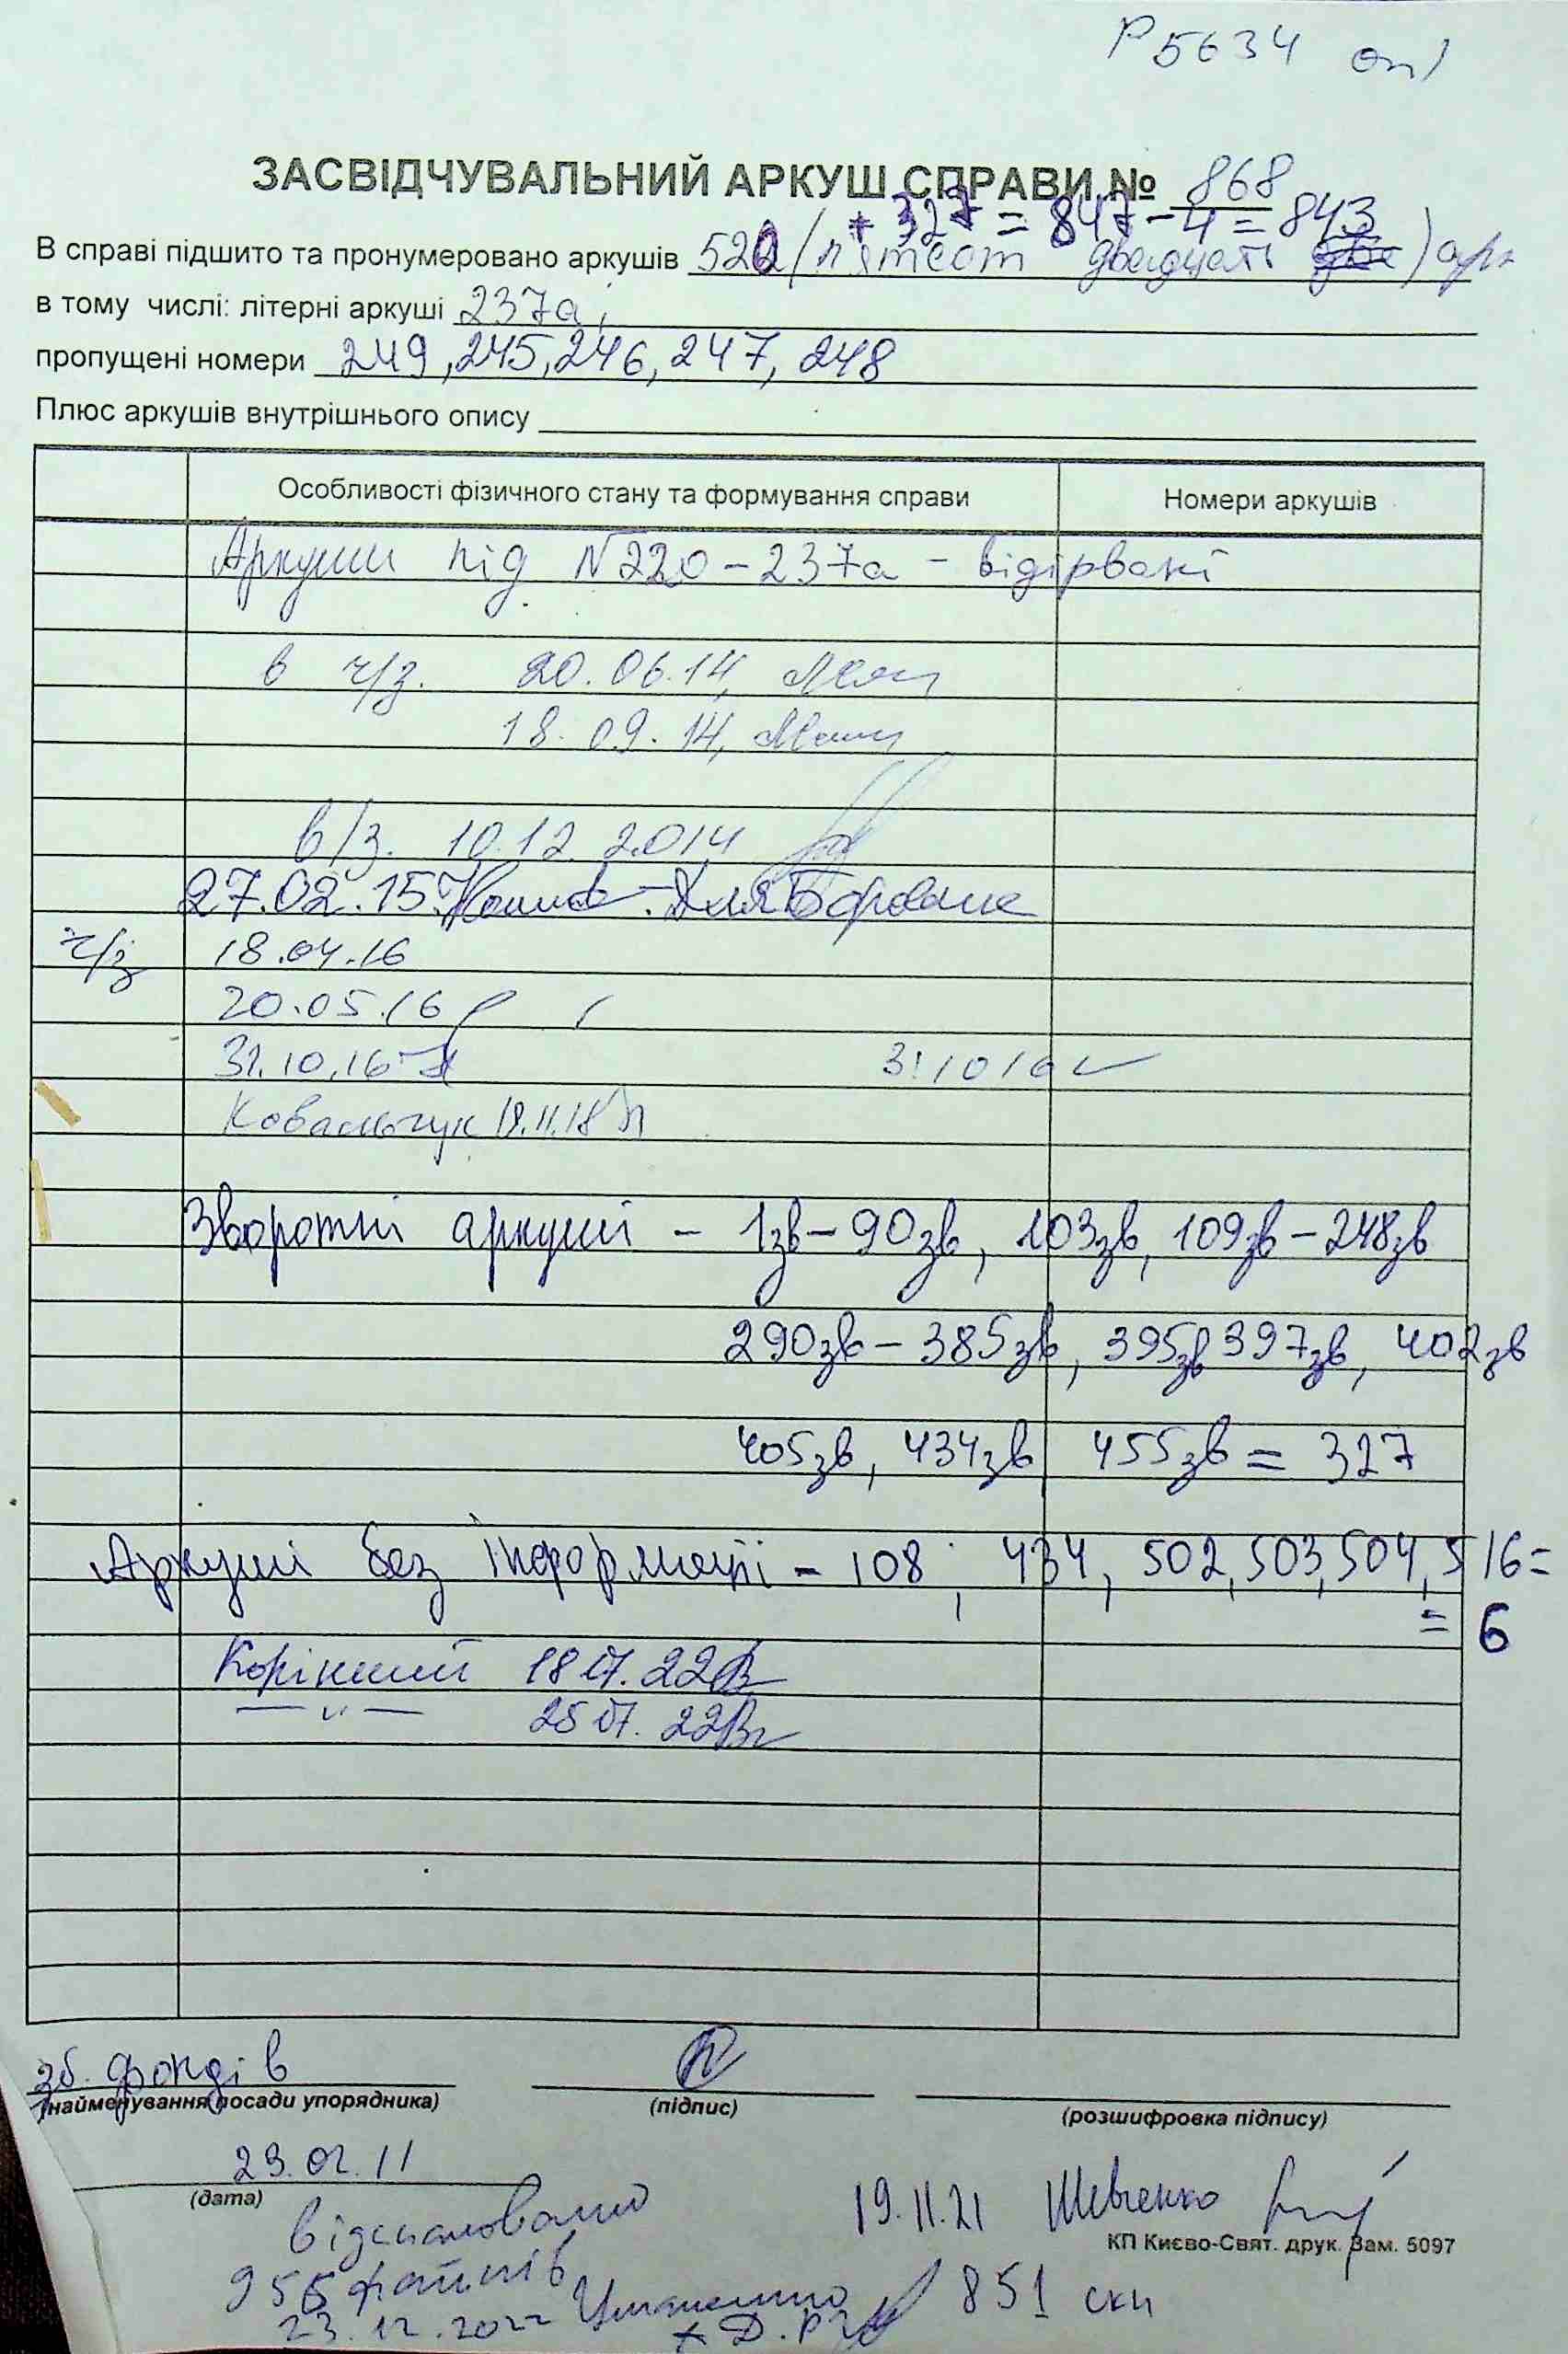 Р 5634 оп 1
ЗАСВІДЧУВАЛЬНИЙ АРКУШ СПРАВИ № 868
+ 327 = 847 - 4 = 843
В справі підшито та пронумеровано аркушів 520 (п'ятсот двадцять) арк
в тому числі: літерні аркуші 237а;
пропущені номери 249, 245, 246, 247, 248
Плюс аркушів внутрішнього опису
Особливості фізичного стану та формування справи
Номери аркушів
Аркуши під № 220 – 237а – відірвані
в ч/з. 20.06.14,
18.09.14,
в/з. 10.12.2014
27.02.15
ч/з 18.04.16
20.05.16
31.10.16 31 10 16
Ковальчук 19.11.18
Зворотні аркуші – 1зв – 90зв, 103зв, 109зв – 248зв
290зв – 385зв, 395зв 397зв, 402зв
405зв, 434зв 455зв = 327
Аркуші без інформації – 108; 434, 502, 503, 504, 516 =
= 6
Корінний 18 07. 22
— " — 25 07. 22
зб. фондів
(найменування посади упорядника)
(підпис)
(розшифровка підпису)
23.02.11
(дата)
19.11.21 Шевченко
КП Києво-Свят. друк. Зам. 5097
відскановано
955 файлів
851 ски
23.12.2022